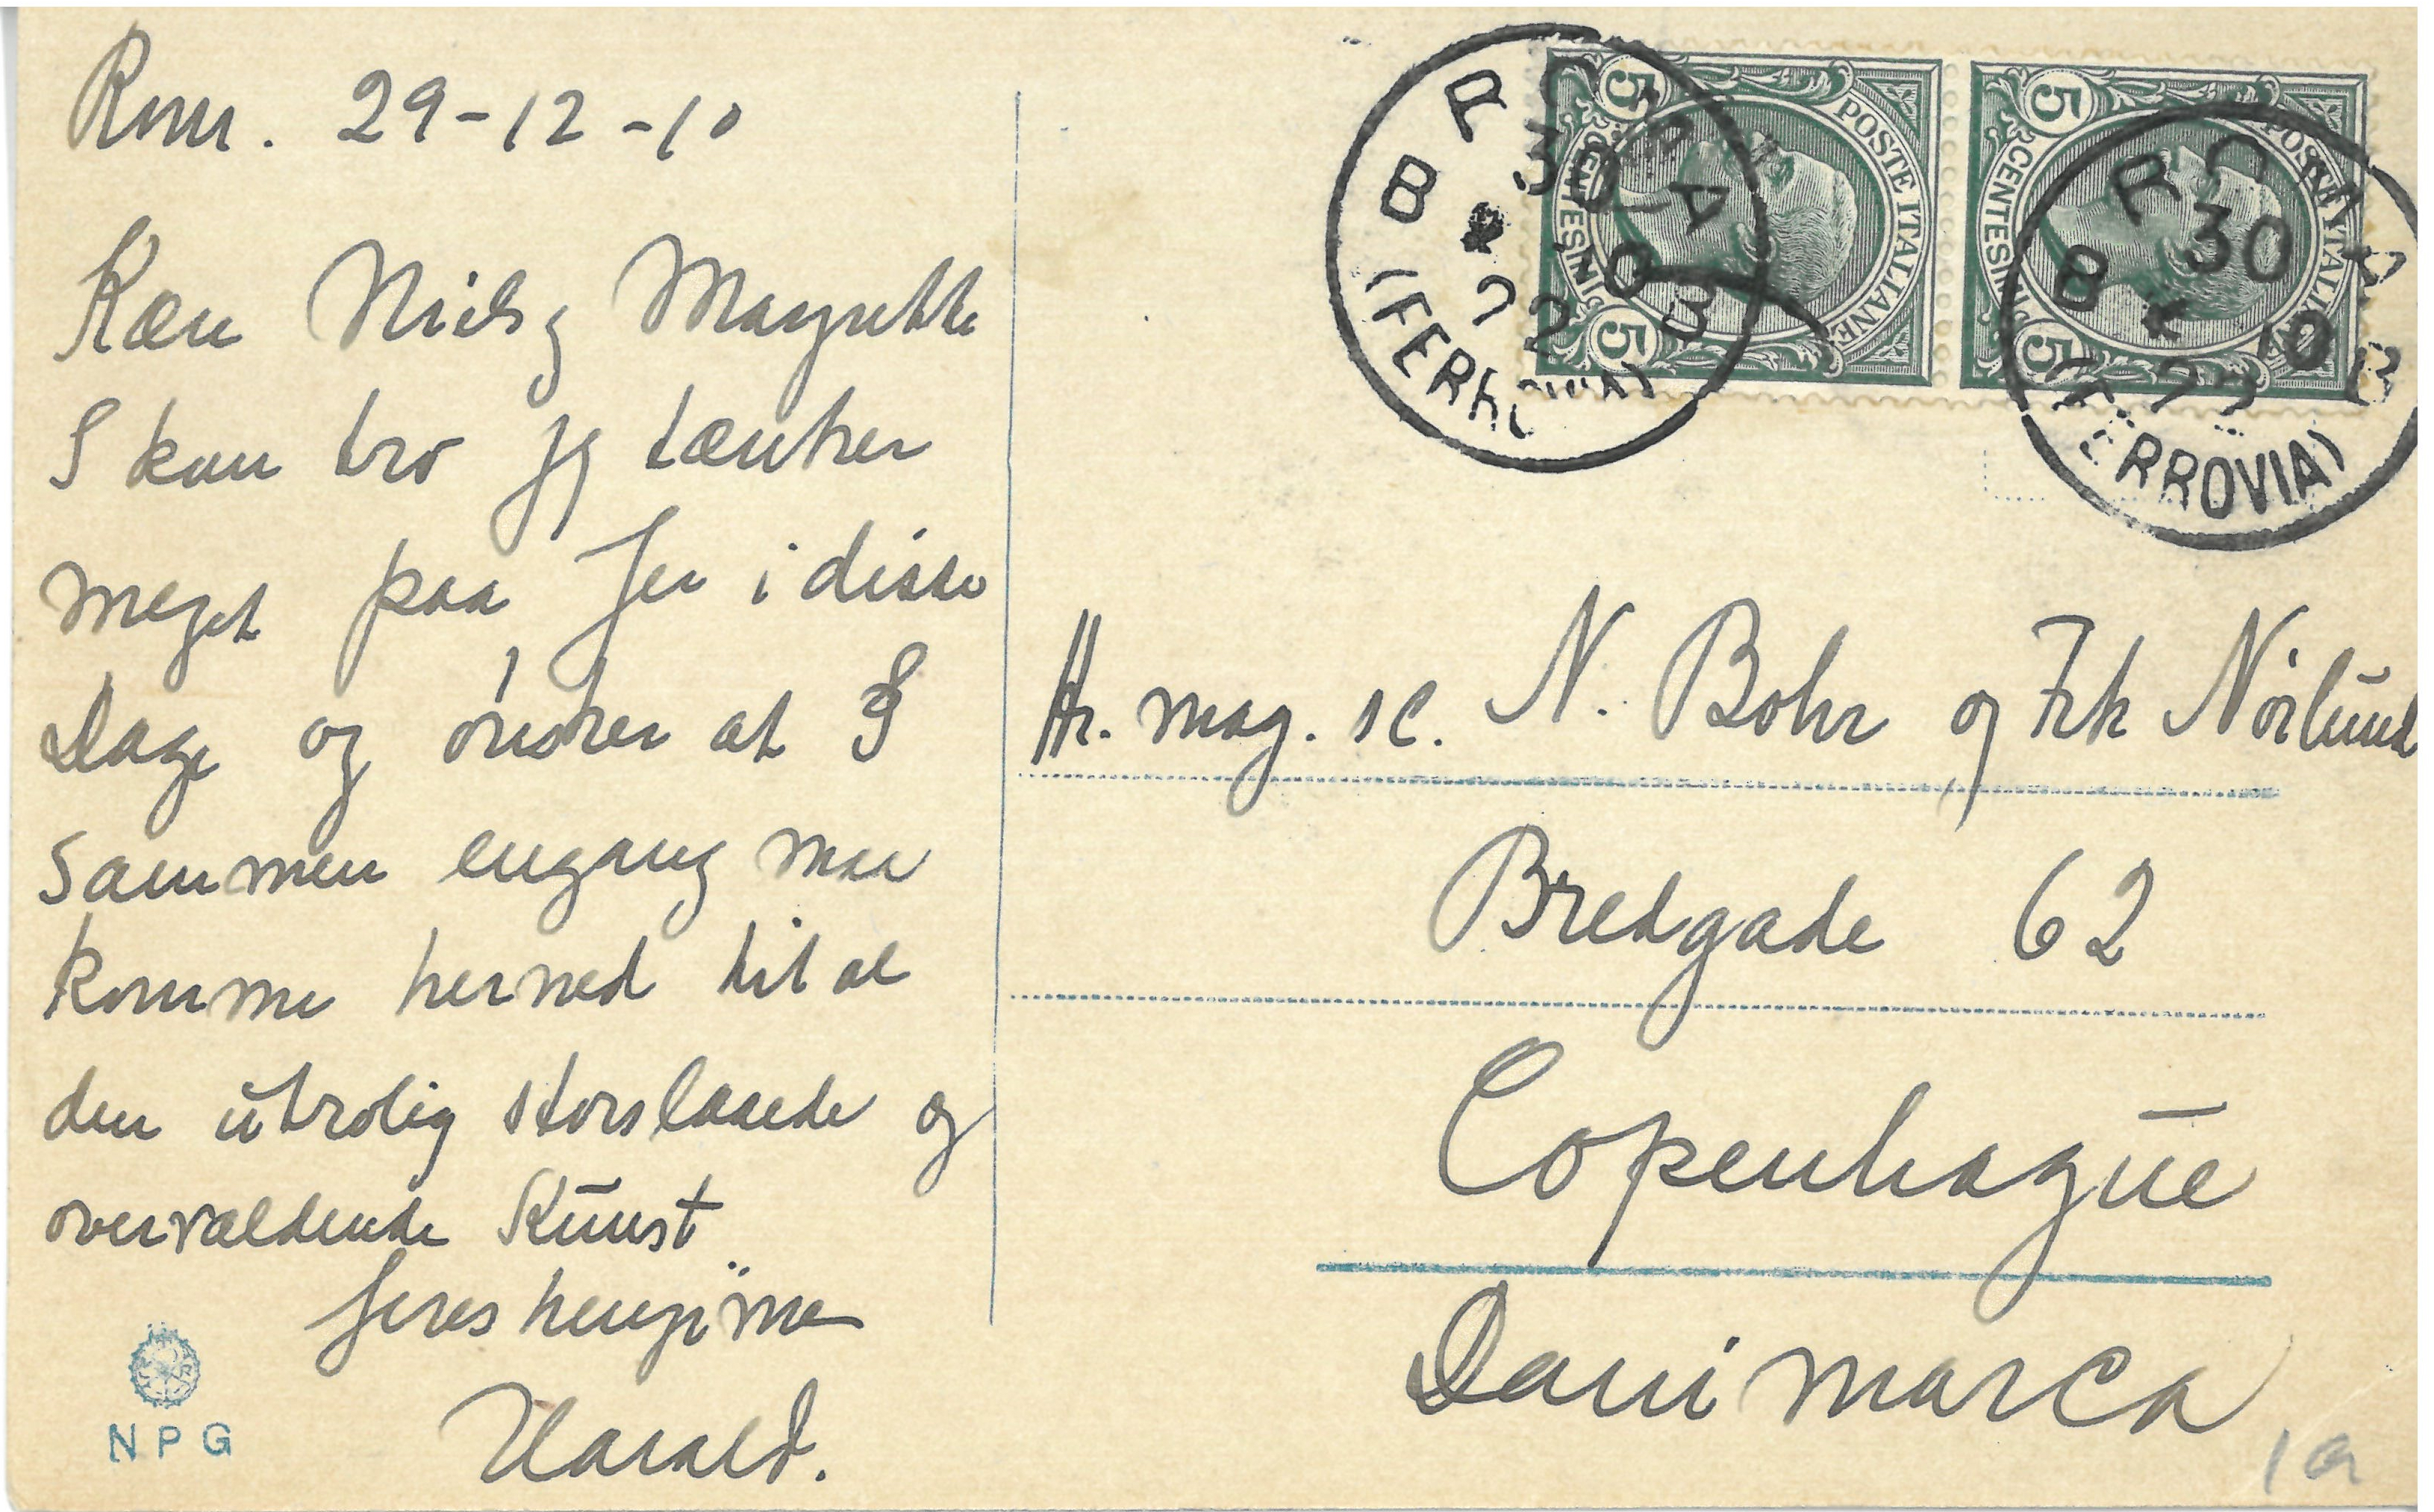 Rom. 29-12-10
Kære Niels og Margrethe
I kan tro jeg tænker
meget paa Jer i disse
Dage og ønsker at I
sammen engang maa
komme herned til al
den utrolig storslaaede og
overvældende Kunst
Jeres hengivne
Harald.
NPG
ROMA
30
12
10
B B
(FERROVIA)
5 5
POSTE ITALIANE
CENTESIMI
ROMA
30
12
10
B B
(FERROVIA)
5 5
POSTE ITALIANE
CENTESIMI
Hr. mag. sc. N. Bohr og Frk Nørlund
Bredgade 62
Copenhague
Danimarca
1a